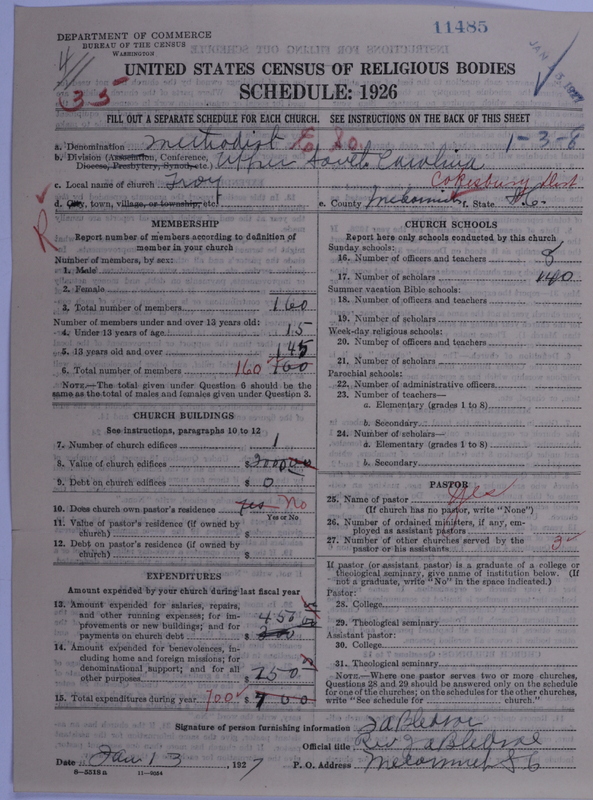 11485
DEPARTMENT OF COMMERCE
BUREAU OF THE CENSUS
WASHINGTON
UNITED STATES CENSUS OF RELIGIOUS BODIES
SCHEDULE: 1926
35
FILL OUT A SEPARATE SCHEDULE FOR EACH CHURCH. SEE INSTRUCTIONS ON THE BACK OF THIS SHEET
a. Denomination Methodist Ep. So. 1-3-8
b. Division (Association, Conference, Diocese, Presbytery, Synod, etc.) Upper South Carolina
c. Local name of church Troy Cokesbury Dist
d. City, town, village, or township, etc. e. County McCormick f. State S.C.
R
MEMBERSHIP
Report number of members according to definition of
member in your church
Number of members, by sex:
1. Male
2. Female
3. Total number of members 160
Number of members under and over 13 years old:
4. Under 13 years of age 15
5. 13 years old and over 145
6. Total number of members 160 160
NOTE.—The total given under Question 6 should be the
same as the total of males and females given under Question 3.
CHURCH BUILDINGS
See instructions, paragraphs 10 to 12
7. Number of church edifices 1
8. Value of church edifices $
9. Debt on church edifices $ 0
10. Does church own pastor's residence yes No
Yes or No
11. Value of pastor's residence (if owned by
church) $
12. Debt on pastor's residence (if owned by
church) $
EXPENDITURES
Amount expended by your church during last fiscal year
13. Amount expended for salaries, repairs,
and other running expenses; for im-
provements or new buildings; and for
payments on church debt $ 450
14. Amount expended for benevolences, in-
cluding home and foreign missions; for
denominational support; and for all
other purposes $ 250
15. Total expenditures during year 700 $ 700
CHURCH SCHOOLS
Report here only schools conducted by this church
Sunday schools:
16. Number of officers and teachers 8
17. Number of scholars 140
Summer vacation Bible schools:
18. Number of officers and teachers
19. Number of scholars
Week-day religious schools:
20. Number of officers and teachers
21. Number of scholars
Parochial schools:
22. Number of administrative officers
23. Number of teachers—
a. Elementary (grades 1 to 8)
b. Secondary
24. Number of scholars—
a. Elementary (grades 1 to 8)
b. Secondary
PASTOR
25. Name of pastor Yes
(If church has no pastor, write "None")
26. Number of ordained ministers, if any, em-
ployed as assistant pastors
27. Number of other churches served by the
pastor or his assistants 3
If pastor (or assistant pastor) is a graduate of a college or
theological seminary, give name of institution below. (If
not a graduate, write "No" in the space indicated.)
Pastor:
28. College
29. Theological seminary
Assistant pastor:
30. College
31. Theological seminary
NOTE.—Where one pastor serves two or more churches,
Questions 28 and 29 should be answered only on the schedule
for one of the churches; on the schedules for the other churches,
write "See schedule for church."
Signature of person furnishing information J a Bledsoe
Official title Rev J a Bledsoe
Date Jan 13, 1927 P. O. Address McCormick S C
8—5518 a 11—9034